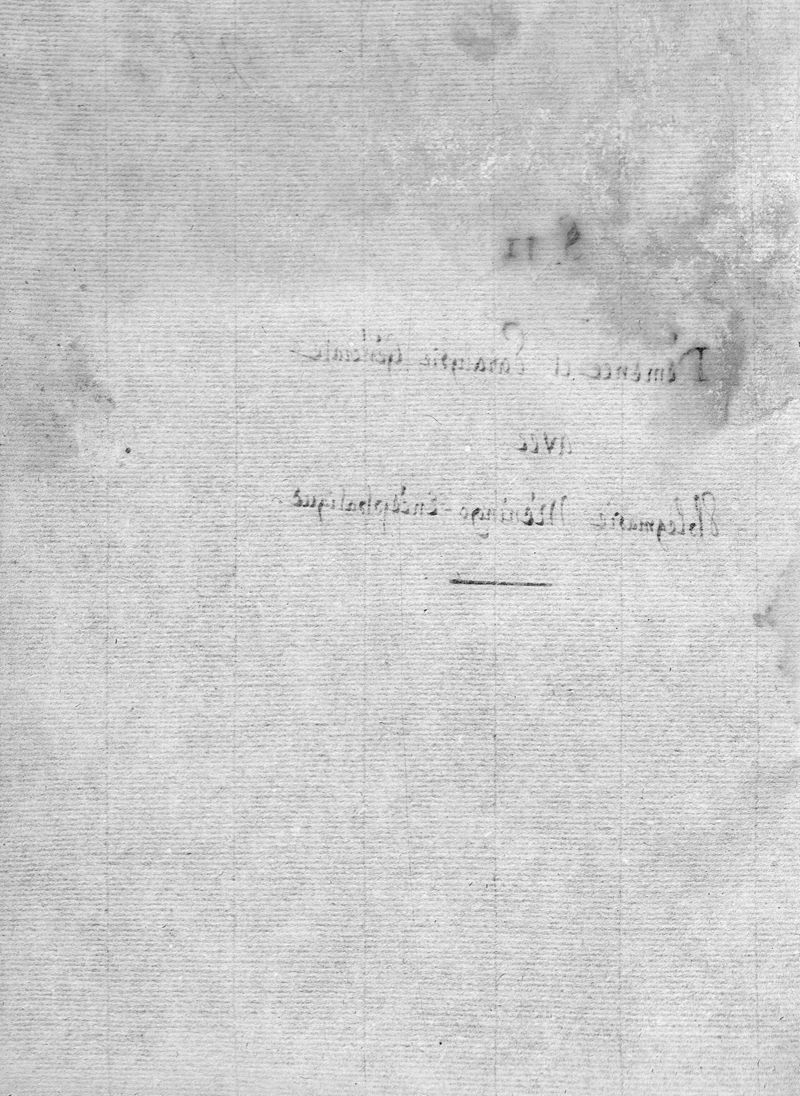 § II
Démence et Paralysie Générale
avec
Phlegmasie Méningo-Encéphalique